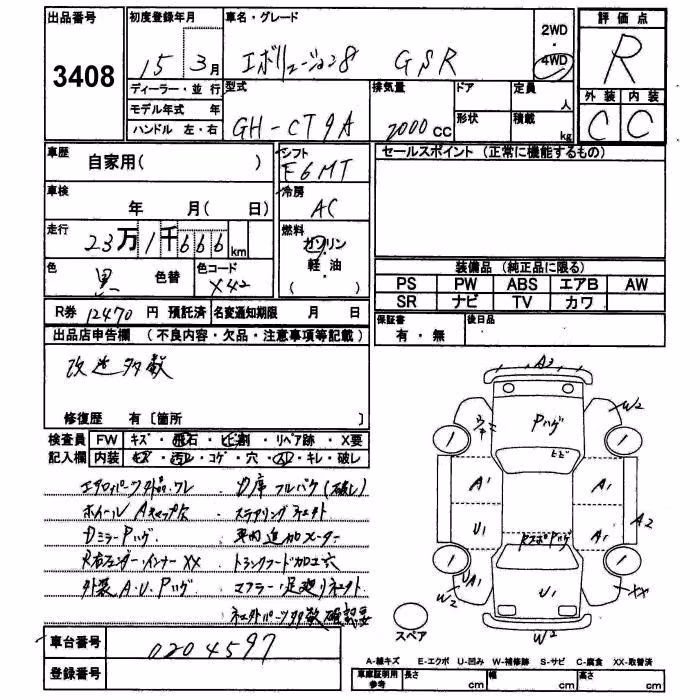 出品番号
3408
初度登録年月
15 3月
車名・グレード
エボリューション8 GSR
2WD
・
4WD
評価点
R
外装 内装
C C
ディーラー・並行
モデル年式 年
ハンドル 左・右
型式
GH-CT9A
排気量
2000cc
ドア
形状
定員
人
積載
kg
車歴
自家用( )
シフト
F6MT
セールスポイント (正常に機能するもの)
車検
年 月( 日)
冷房
AC
走行
23万1千666km
燃料
ガソリン
軽・油
( )
色
黒
色替
色コード
X42
装備品 (純正品に限る)
PS PW ABS エアB AW
SR ナビ TV カワ
R券 12470 円 預託済 名変通知期限 月 日
保証書
有・無
後日品
出品店申告欄 (不良内容・欠品・注意事項等記載)
改造多数
修復歴 有 [箇所 ]
検査員 FW キズ・飛石・ヒビ割・リペア跡・X要
記入欄 内装 キズ・汚レ・コゲ・穴・スレ・キレ・破レ
エアロパーツ外品・ワレ
ホイールAキャップ欠
DミラーPハゲ
R右フェンダーインナーXX
外装A.U.Pハゲ
力席フルバケ(破レ)
ステアリングネット
車内追加メーター
トランクフード加工穴
マフラー・足廻り
パーツ多数確認要
A3
Pハゲ
ヒビ
W2
A1
A1
U1
A1
A2
RスポPハゲ
U1
A1
W2
U1
XX
W2
スペア
車台番号
0204597
登録番号
A-線キズ E-エクボ U-凹み W-補修跡 S-サビ C-腐食 XX-取替済
車庫証明用
参考
長さ cm
幅 cm
高さ cm